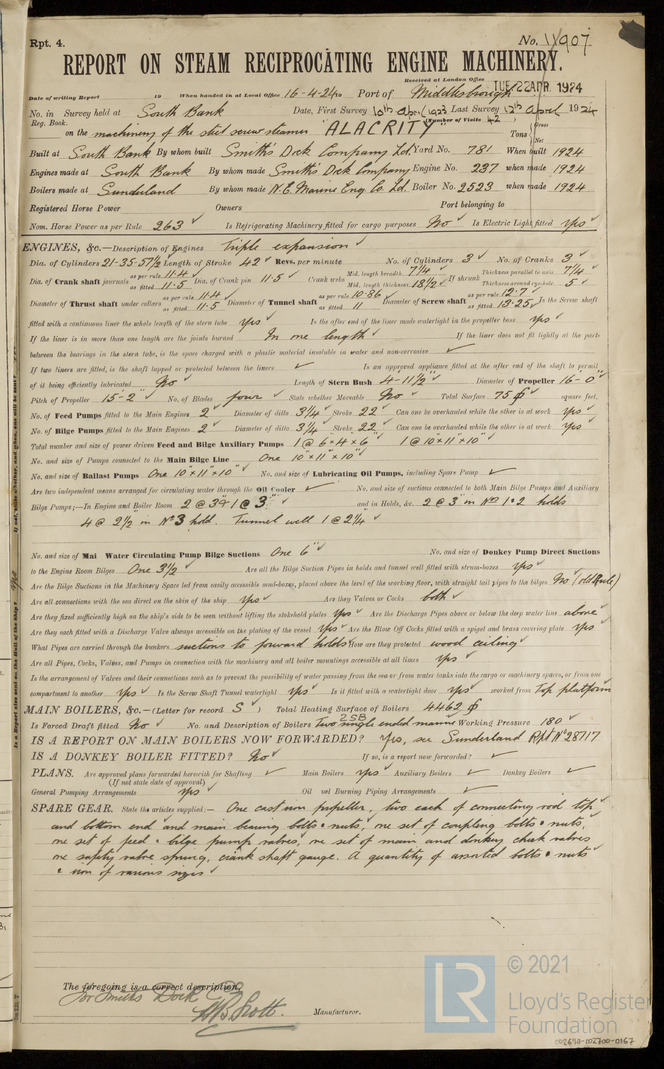 Rpt. 4. No. 11907
REPORT ON STEAM RECIPROCATING ENGINE MACHINERY.
Received at London Office TUE. 22 APR. 1924
Date of writing Report 19 When handed in at Local Office 16-4-24 Port of Middlesbrough
No. in Survey held at South Bank Date, First Survey 10th Apl. 1923 Last Survey 12th April 1924
Reg. Book. (Number of Visits 42
on the machinery of the steel screw steamer "ALACRITY" Tons Gross Net
Built at South Bank By whom built Smith's Dock Company Ltd Yard No. 781 When built 1924
Engines made at South Bank By whom made Smith's Dock Company Engine No. 237 when made 1924
Boilers made at Sunderland By whom made N.E. Marine Eng. Co. Ld. Boiler No. 2523 when made 1924
Registered Horse Power Owners Port belonging to
Nom. Horse Power as per Rule 263 Is Refrigerating Machinery fitted for cargo purposes No Is Electric Light fitted Yes
ENGINES, &c.—Description of Engines Triple expansion
Dia. of Cylinders 21-35-57½ Length of Stroke 42 Revs. per minute No. of Cylinders 3 No. of Cranks 3
Dia. of Crank shaft journals as per rule 11.4 as fitted 11.5 Dia. of Crank pin 11.5 Crank webs Mid. length breadth 7¼ Mid. length thickness 18½ If shrunk Thickness parallel to axis 7¼ Thickness around eyehole 5
Diameter of Thrust shaft under collars as per rule 11.4 as fitted 11.5 Diameter of Tunnel shaft as per rule 10.86 as fitted 11 Diameter of Screw shaft as per rule 12.7 as fitted 13.25 Is the Screw shaft
fitted with a continuous liner the whole length of the stern tube Yes Is the after end of the liner made watertight in the propeller boss Yes
If the liner is in more than one length are the joints burned In one length If the liner does not fit tightly at the part
between the bearings in the stern tube, is the space charged with a plastic material insoluble in water and non-corrosive
If two liners are fitted, is the shaft lapped or protected between the liners Is an approved appliance fitted at the after end of the shaft to permit
of it being efficiently lubricated No Length of Stern Bush 4-11½" Diameter of Propeller 16-0"
Pitch of Propeller 15-2" No. of Blades four State whether Moveable No Total Surface 75 square feet.
No. of Feed Pumps fitted to the Main Engines 2 Diameter of ditto 3¼ Stroke 22 Can one be overhauled while the other is at work Yes
No. of Bilge Pumps fitted to the Main Engines 2 Diameter of ditto 3¼ Stroke 22 Can one be overhauled while the other is at work Yes
Total number and size of power driven Feed and Bilge Auxiliary Pumps 1 @ 6"×4"×6" 1 @ 10"×11"×10"
No. and size of Pumps connected to the Main Bilge Line One 10"×11"×10"
No. and size of Ballast Pumps One 10"×11"×10" No. and size of Lubricating Oil Pumps, including Spare Pump
Are two independent means arranged for circulating water through the Oil Cooler No. and size of suctions connected to both Main Bilge Pumps and Auxiliary
Bilge Pumps;—In Engine and Boiler Room 2 @ 3 1 @ 3" and in Holds, &c. 2 @ 3" in No 1 & 2 holds
4 @ 2½ in No 3 hold. Tunnel well 1 @ 2¼
No. and size of Main Water Circulating Pump Bilge Suctions One 6" No. and size of Donkey Pump Direct Suctions
to the Engine Room Bilges One 3½ Are all the Bilge Suction Pipes in holds and tunnel well fitted with strum-boxes Yes
Are the Bilge Suctions in the Machinery Space led from easily accessible mud-boxes, placed above the level of the working floor, with straight tail pipes to the bilges No (old Rule)
Are all connections with the sea direct on the skin of the ship Yes Are they Valves or Cocks both
Are they fixed sufficiently high on the ship's side to be seen without lifting the stokehold plates Yes Are the Discharge Pipes above or below the deep water line above
Are they each fitted with a Discharge Valve always accessible on the plating of the vessel Yes Are the Blow Off Cocks fitted with a spigot and brass covering plate Yes
What Pipes are carried through the bunkers suctions to forward holds How are they protected wood ceiling
Are all Pipes, Cocks, Valves, and Pumps in connection with the machinery and all boiler mountings accessible at all times Yes
Is the arrangement of Valves and their connections such as to prevent the possibility of water passing from the sea or from water tanks into the cargo or machinery spaces, or from one
compartment to another Yes Is the Screw Shaft Tunnel watertight Yes Is it fitted with a watertight door Yes worked from Top platform
MAIN BOILERS, &c.—(Letter for record S) Total Heating Surface of Boilers 4462
Is Forced Draft fitted No No. and Description of Boilers Two single ended marine 2SB Working Pressure 180
IS A REPORT ON MAIN BOILERS NOW FORWARDED? Yes, see Sunderland Rpt No 28717
IS A DONKEY BOILER FITTED? No If so, is a report now forwarded?
PLANS. Are approved plans forwarded herewith for Shafting Main Boilers Yes Auxiliary Boilers Donkey Boilers
(If not state date of approval)
General Pumping Arrangements Yes Oil fuel Burning Piping Arrangements
SPARE GEAR. State the articles supplied:— One cast iron propeller, two each of connecting rod top
and bottom end and main bearing bolts & nuts, one set of coupling bolts & nuts,
one set of feed & bilge pump valves, one set of main and donkey check valves
one safety valve spring, crank shaft gauge. A quantity of assorted bolts & nuts
& iron of various sizes
The foregoing is a correct description,
for Smiths Dock Co
Manufacturer.
© 2021
LR
Lloyd's Register
Foundation
002690-002700-0167